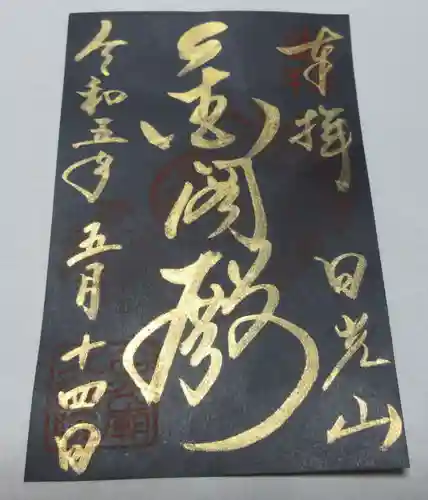 奉拝
日光山
金閣殿
令和五年五月十四日